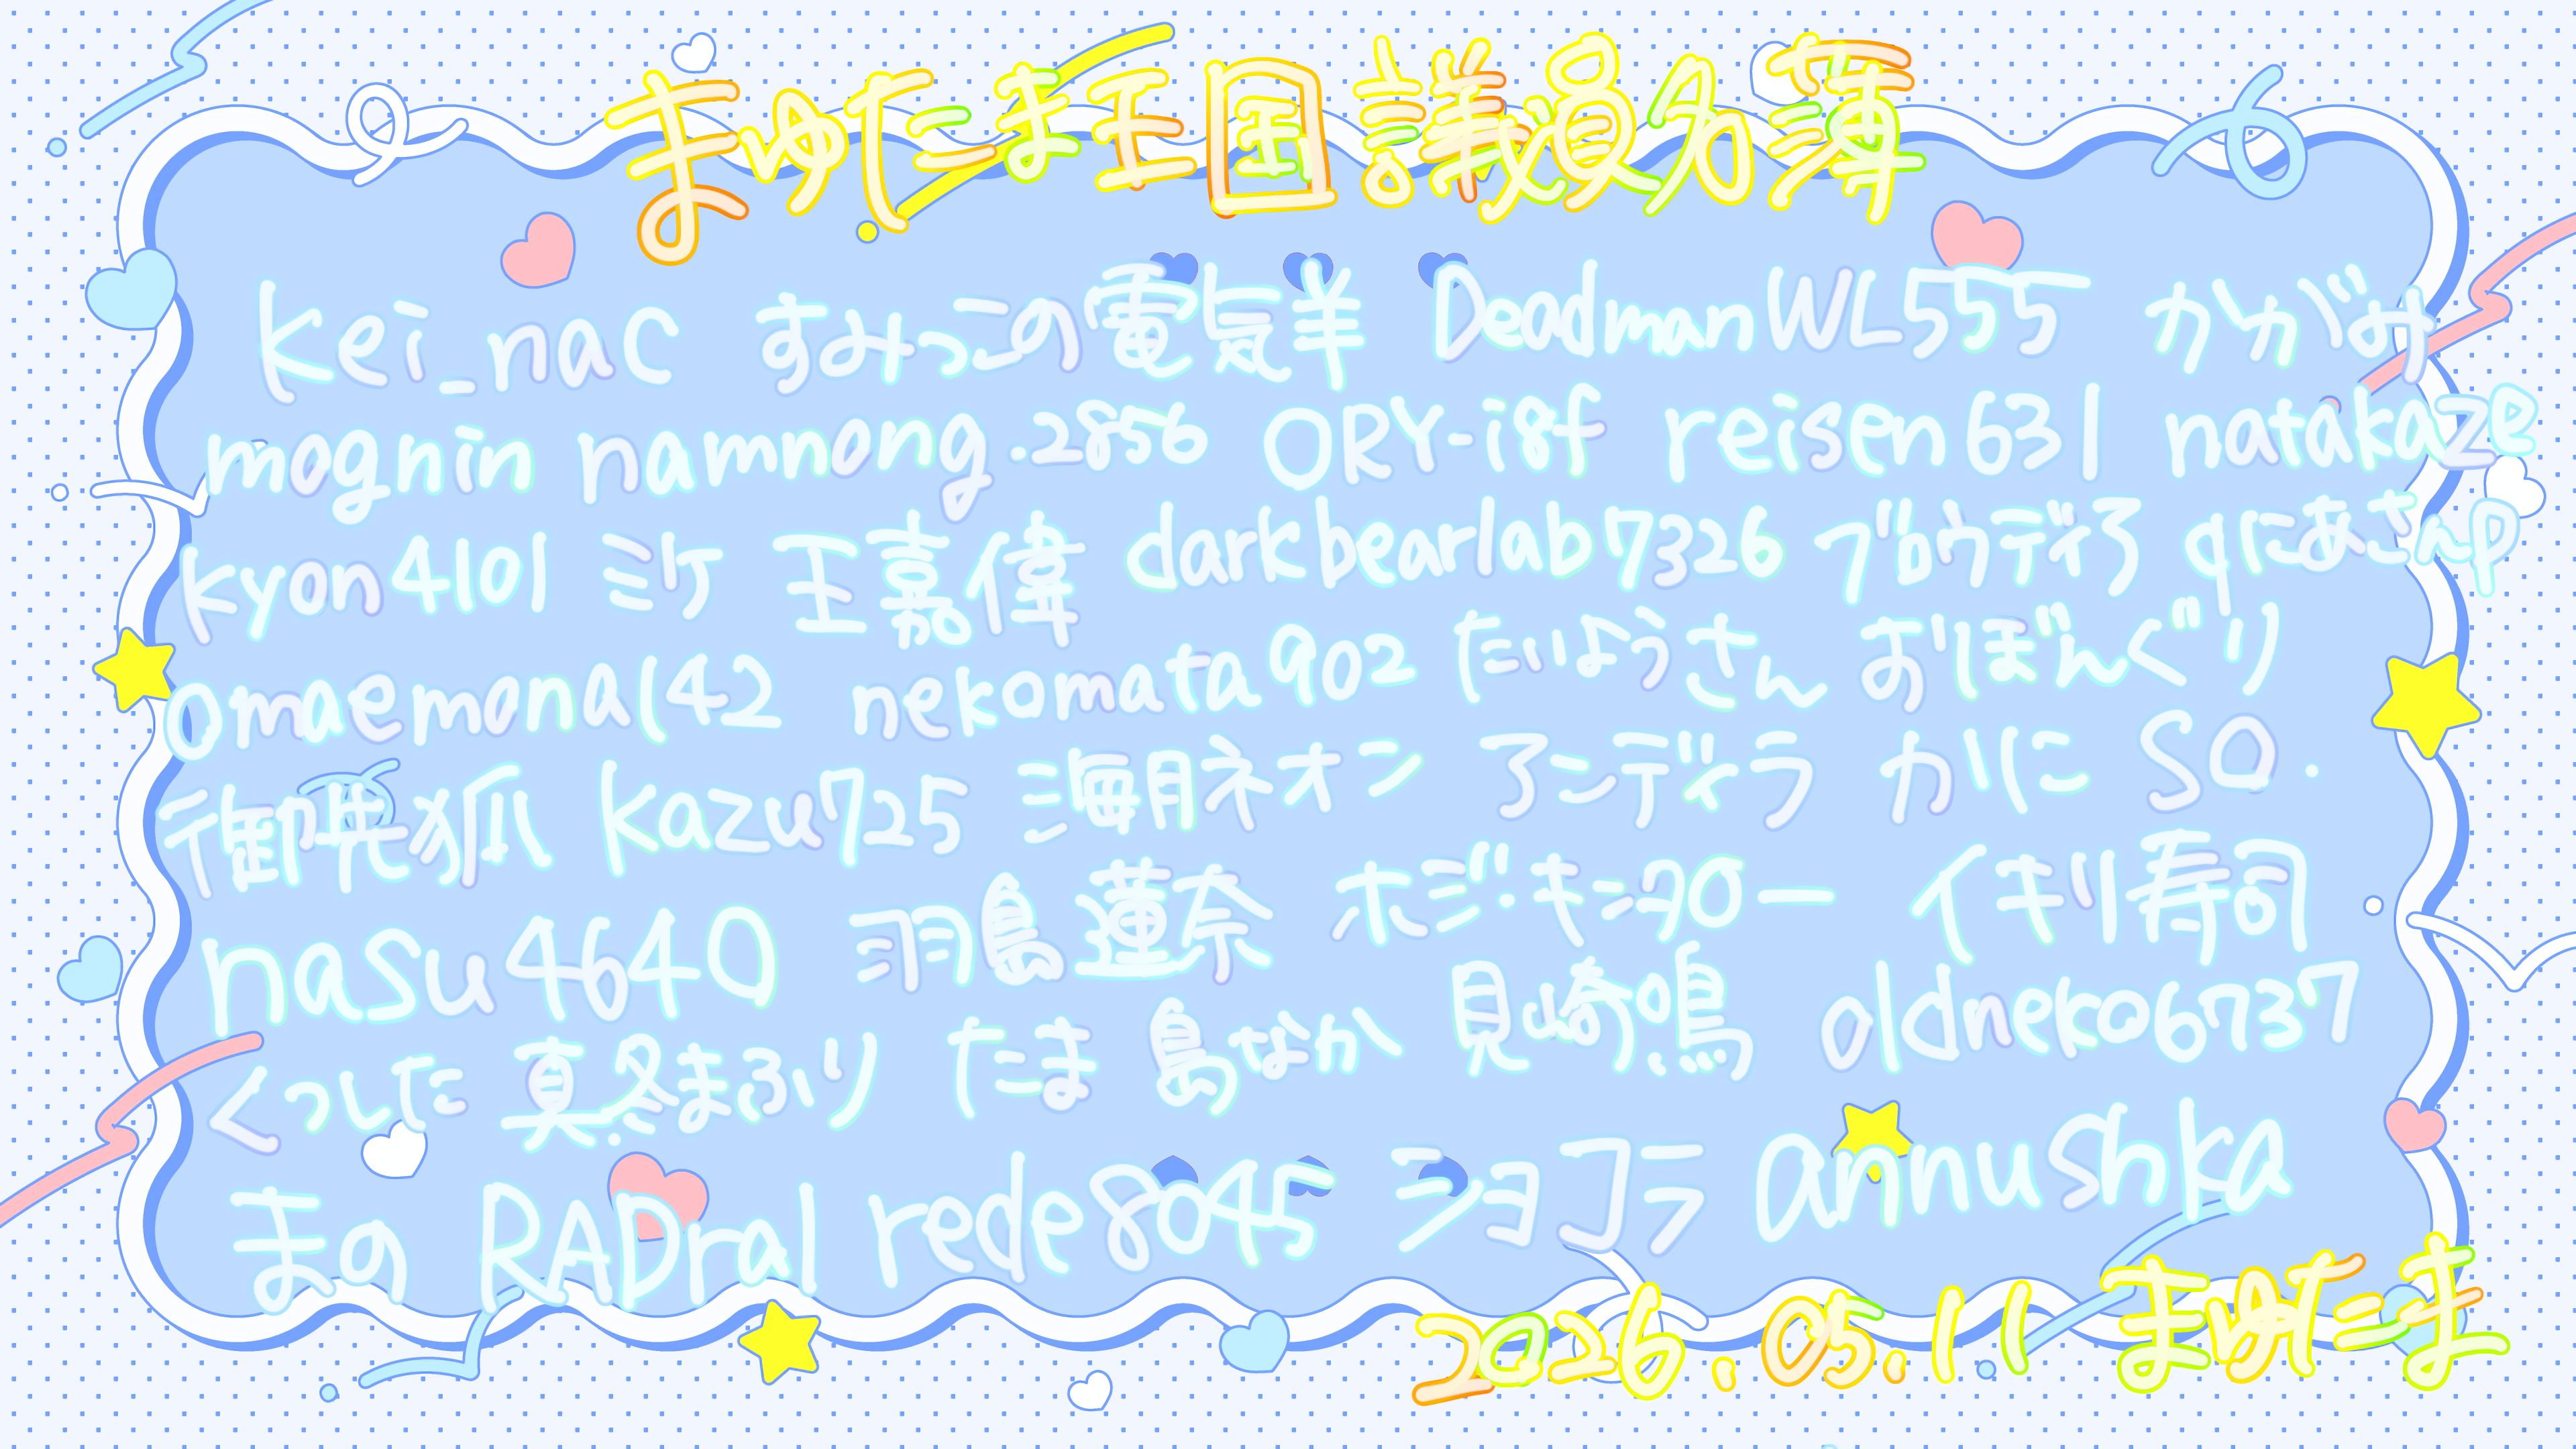 まゆたま王国議員名簿
kei_nac すみっこの電気羊 DeadmanWL555 かがみ
mognin namnong.2856 ORY-i8f reisen631 natakaze
kyon4101 ミケ 王嘉偉 darkbearlab7326 ブロウディろ qにあさんp
Omaemona142 nekomata902 たいようさん おぼんぐり
御晄狐 kazu725 海月ネオン アンディラ かに SO.
nasu4640 羽島蓮奈 ホジ・キンタロー イキリ寿司
くつした 真冬まふり たま 島なか 見崎鳴 oldneko6737
まの RADral rede8045 ショコラ annushka
2026.05.11 まゆたま